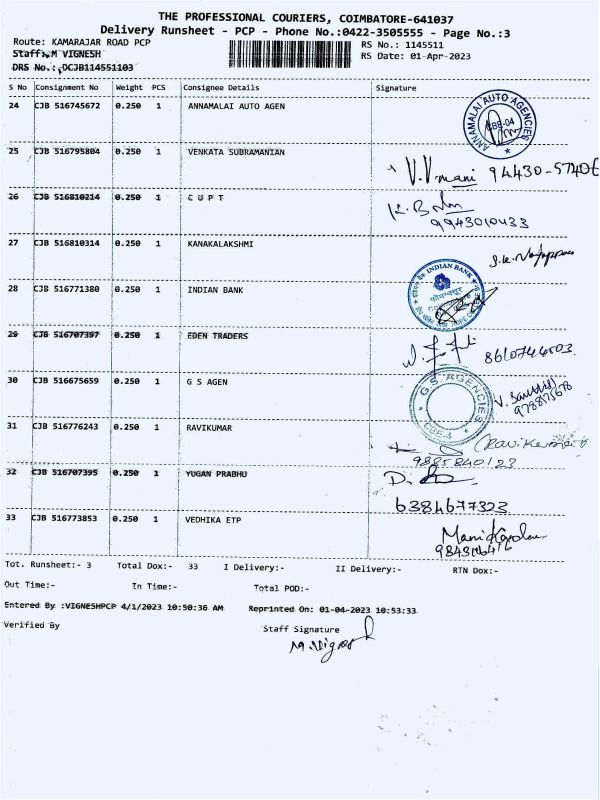 THE PROFESSIONAL COURIERS, COIMBATORE-641037
Delivery Runsheet - PCP - Phone No.:0422-3505555 - Page No.:3
Route: KAMARAJAR ROAD PCP
RS No.: 1145511
Staff:M VIGNESH
RS Date: 01-Apr-2023
DRS No.: DCJB114551103
S No Consignment No Weight PCS Consignee Details Signature
24 CJB 516745672 0.250 1 ANNAMALAI AUTO AGEN
ANNAMALAI AUTO AGENCIES CBE-04
25 CJB 516795804 0.250 1 VENKATA SUBRAMANIAN
V.V.mani 94430-57406
26 CJB 516810214 0.250 1 C U P T
9943010433
27 CJB 516810314 0.250 1 KANAKALAKSHMI
28 CJB 516771380 0.250 1 INDIAN BANK
INDIAN BANK
29 CJB 516707397 0.250 1 EDEN TRADERS
30 CJB 516675659 0.250 1 G S AGEN
G.S. AGENCIES CBE-4
31 CJB 516776243 0.250 1 RAVIKUMAR
9885840123
32 CJB 516707395 0.250 1 YUGAN PRABHU
6384677323
33 CJB 516773853 0.250 1 VEDHIKA ETP
Tot. Runsheet:- 3 Total Dox:- 33 I Delivery:- II Delivery:- RTN Dox:-
Out Time:- In Time:- Total POD:-
Entered By :VIGNESHPCP 4/1/2023 10:50:36 AM Reprinted On: 01-04-2023 10:53:33
Verified By Staff Signature